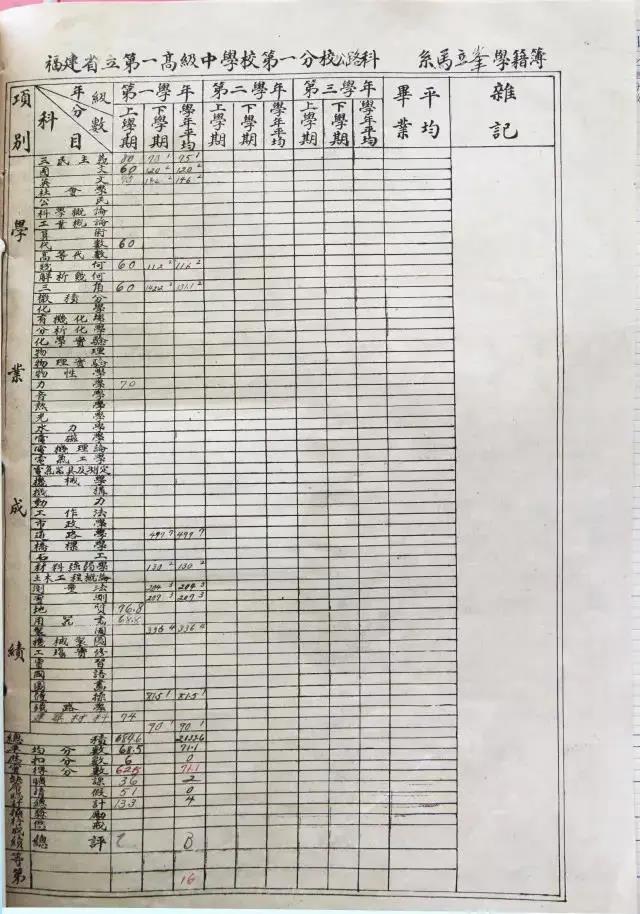 福建省立第一高級中學校第一分校公路科 系馬立峯學籍簿
項別 年級 分數 科目 第一學年 第二學年 第三學年 畢業 平均 雜記
上學期 下學期 學年平均 上學期 下學期 學年平均 上學期 下學期 學年平均
學業成績
三民主義 80 70 1 75 1
國文 60 120 2 120 2
英文 146 2 146 2
社會學
公民
科學概論
工業概論
算術
代數 60
高等代數
幾何 60
解析幾何
三角 60
微積分
化學
有機化學
分析化學
化學實驗
物理
物理實驗
物性學
力學 70
音學
熱學
光學
水力學
電磁學
電機理論
電氣工學
機械學
機構
動力
工作法
市政學
道路學 497 7 497 7
橋樑學
石工
材料強弱學 130 2 130 2
土木工程概論
測量法 204 3 204 3
實測 207 3 207 3
地質 76.8
用器畫 68.8
製圖 336 4 336 4
機械製圖
工場實修
實習
國語
圖畫
體操 81.5 1 81.5 1
鐵路學
建築材料 74
90 1 90 1
總積 689.6 2133.6
平均分數 68.5 71.1
扣分數 6 0
得分數 62.5 71.1
曠課 36 2
請假 51 0
總計 133 4
獎勵
懲戒
總評 B
等第 16